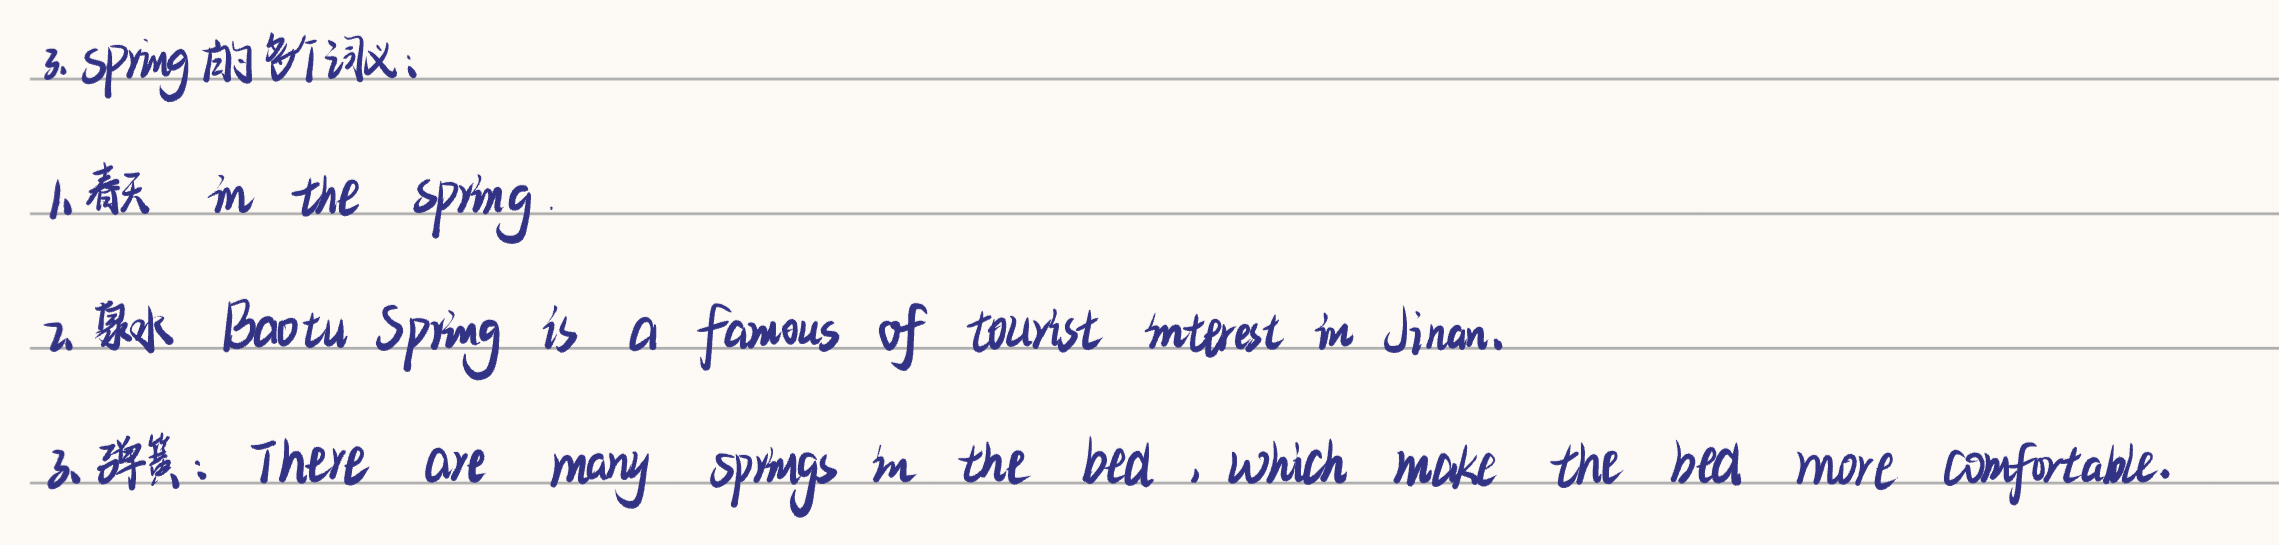 3. spring 的多个词义：
1. 春天 in the spring.
2. 泉水 Baotu Spring is a famous of tourist interest in Jinan.
3. 弹簧： There are many springs in the bed , which make the bed more comfortable.